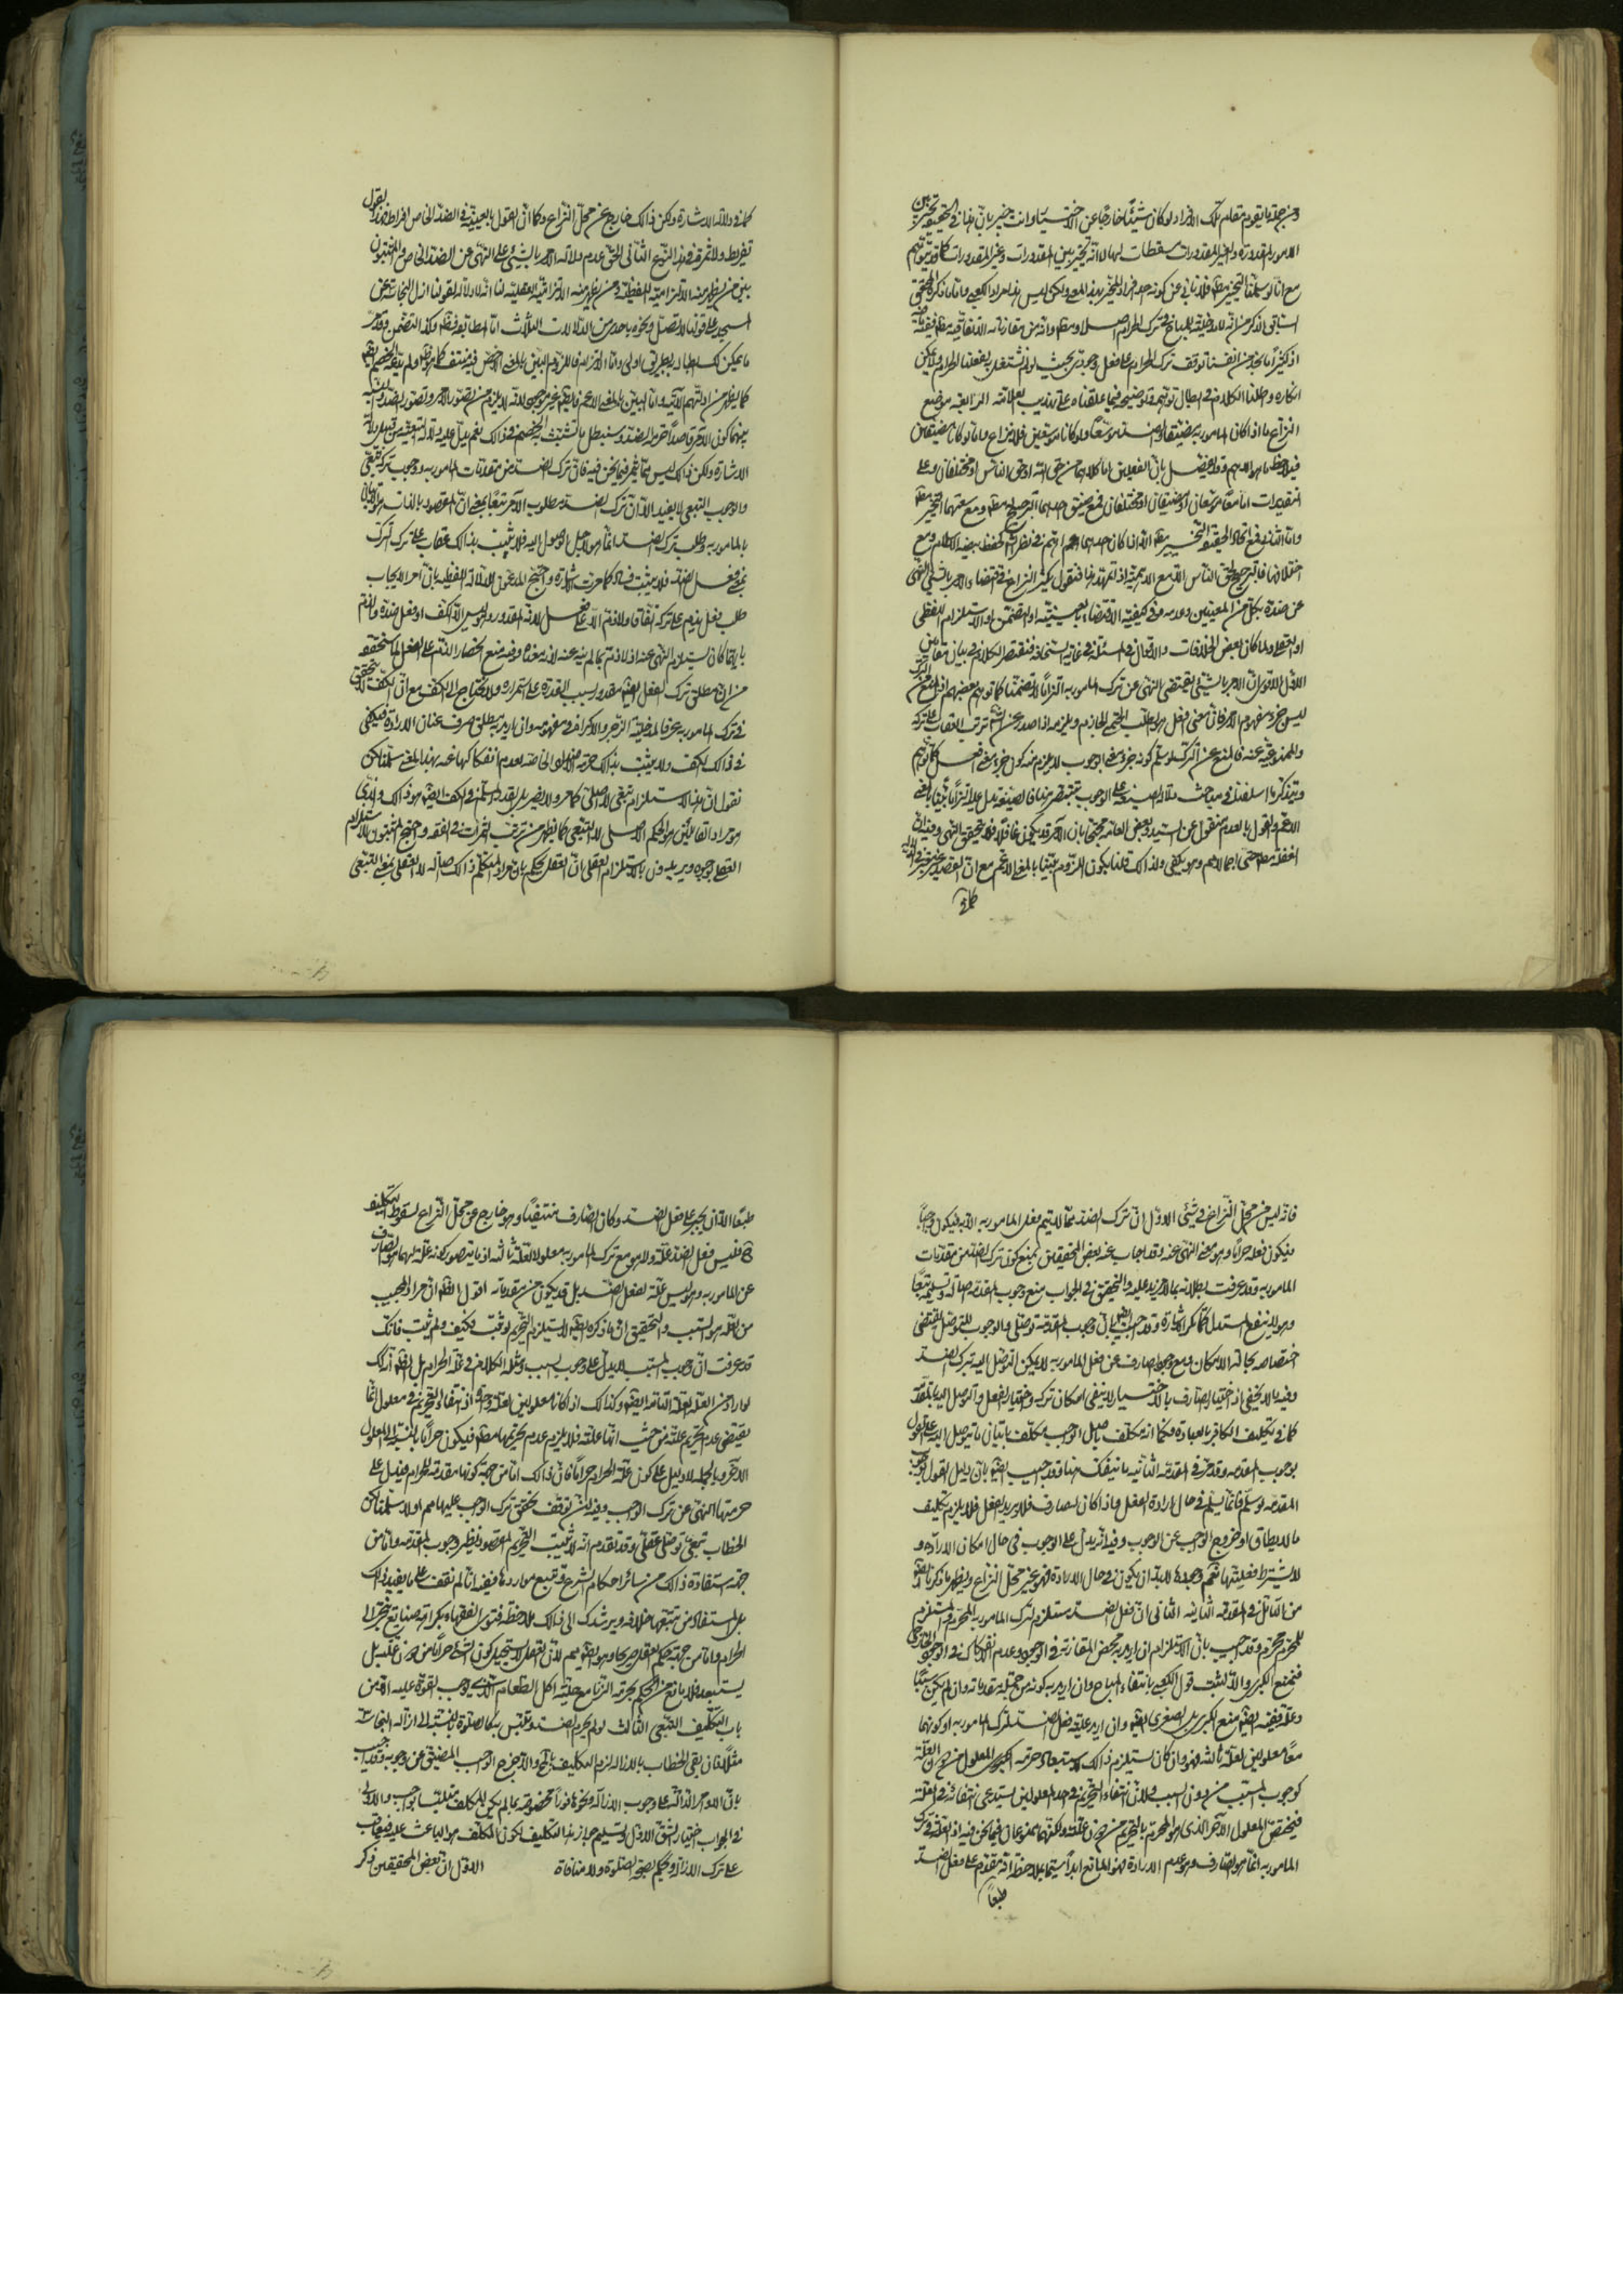 ومن جملة ما يقوم مقام تلك الافراد لو كان شيئا خارجا عن الاختيار وانت خبير بان هذا في الحقيقة تخيير بين
الامور المقدورة والغير المقدورات مسقطات لها لا انه تخيير بين المقدورات وغير المقدورات كما قد يتوهم
مع انا لو سلمنا التخيير فلا نابي عن كونه احد افراد المخير بهذا المعنى ولكن ليس هذا مراد الكعبي واما ما ذكره المحقق
السابق الذكر من انه لا مدخلية للمباح في ترك الحرام اصلا وانه من مقارناته الاتفاقية مطلقا ففيه ما فيه
اذ كثيرا ما نجد من انفسنا توقف ترك الحرام على فعل وجودي بحيث لو لم نشتغل به لفعلنا الحرام ولا يمكن
انكاره وطلنا الكلام في ابطال توهمهم وتوضيحه فيما علقناه على تهذيب العلامة الرابعة موضع
النزاع ما اذا كان المامور به مضيقا والضد موسعا ولو كانا موسعين فلا نزاع واما لو كانا مضيقين
فيلاحظ ما هو الاهم وقد يفصل بان الضدين اما كلاهما من حق الله او حق الناس او مختلفان وعلى
التقديرات اما معا موسعان او مضيقان او مختلفان فمع ضيق احدهما الترجيح له مطلقا ومع سعتهما التخيير مطلقا
واما الثاني فمع اتحاد الحقيقة التخيير مطلقا الا اذا كان احدهما اهم في نظر الشارع كحفظ بيضة الاسلام ومع
اختلافهما فالترجيح لحق الناس الا مع الاهمية اذا تمهد هذا فنقول كثر النزاع في اقتضاء الامر بالشئ النهي
عن ضده بكل من المعنيين وعدمه وفي كيفية الاقتضاء بالعينية او التضمن او الاستلزام اللفظي
او العقلي ولما كان بعض الخلافات والاقوال في المسئلة في غاية السخافة فنقتصر الكلام في بيان مقامين
الاول الاقوى ان الامر بالشئ يقتضي النهي عن ترك المامور به التزاما لا تضمنا كما توهم بعضهم اذ المنع من الترك
ليس جزء مفهوم الامر فان معنى افعل هو الطلب الحتمي الجازم ويلزمه اذا صدر عن الشارع ترتب العقاب على تركه
والممنوعية عنه فالمنع عن الترك لو سلم كونه جزء معنى الوجوب لا يلزم منه كون جزء معنى افعل كما توهم
ويتذكر ما اسلفنا في مباحث دلالة الصيغة على الوجوب تتبصر هنا فالصيغة تدل على التزاما بينا بالمعنى
الاعم والقول بالعدم منقول عن السيد وبعض العامة محتجا بان الآمر قد يكون غافلا فلا يتحقق النهي وفيه ان
الغفلة مطلقا حتى اجمالا مم وهو يكفي ولذلك قلنا بكون اللزوم بينا بالمعنى الاعم مع ان القصد غير معتبر في الدلالة
كما في
كما في دلالة الاشارة ولكن ذلك خارج عن محل النزاع وكما ان القول بالعينية في الضد الخاص افراط فهذا القول
تفريط ولا ثمرة في هذا النزاع الثاني الحق عدم دلالة الامر بالشئ على النهي عن الضد الخاص والمثبتون
بين من يظهر منه الالتزامية اللفظية ومن يظهر منه الالتزامية العقلية لنا انه لا دلالة لقولنا ازل النجاسة عن
المسجد على قولنا لا تصل ونحوه باحد من الدلالات الثلاث اما المطابقة فظ وكذا التضمن وقد مر
ما يمكن لك ابطاله بطريق اولى واما الالتزام فاللزوم البين بالمعنى الاخص فيه منتف كما هو ظ ولم يتفق الخصم
كما يظهر من ادلتهم الاتية واما البين بالمعنى الاعم فايضا غير موجود لانه لا يلزم من تصور الامر وتصور الضد والنسبة
بينهما كون الآمر قاصدا حرمة الضد وسنبطل ما تشبث به الخصم في ذلك نعم يدل عليه دلالة التبعية من قبيل دلالة
الاشارة ولكن ذلك ليس مما يثمر فيما نحن فيه فان ترك الضد من مقدمات المامور به ووجوبه تركه تبعي
والوجوب التبعي لا يفيد الا ان ترك الضد مطلوب الآمر تبعا بمعنى ان المقصود بالذات هو الاتيان
بالمامور به وطلب ترك الضد انما هو لاجل الوصول اليه فلا يثبت بذلك عقاب على ترك الترك
بمعنى فعل الضد فلا يثبت فساد كما مرت الاشارة واحتج المدعون للدلالة اللفظية بان امر الايجاب
طلب فعل يذم على تركه اتفاقا ولا ذم الا على فعل لانه المقدور وليس الا الكف او فعل ضده والذم
بايهما كان يستلزم النهي عنه اذ لا ذم بما لم ينه عنه لانه معناه وفيه منع انحصار الذم على الفعل لما سنحققه
من ان مطلق ترك الفعل ايضا مقدور بسبب القدرة على استمراره ولا يحتاج الى الكف مع ان الكف لا يتحقق
في ترك المامور به عرفا لمدخلية الزجر والاكراه في مفهومه وان اريد به مطلق صرف عنان الارادة فيكفي
في ذلك الكف ولا يثبت بذلك حرمة الاضداد الخاصة لعدم انفكاكها عنه بهذا المعنى سلمنا لكن
نقول ان هذا الاستلزام تبعي لا اصلي كما مر ولا يضر بل القدر المسلم في الكف ايضا هو ذلك والذي
هو مراد القائلين هو الحكم الاصلي لا التبعي كما يظهر من ترتب الثمرات في الفقه واحتج المثبتون للاستلزام
العقلي بوجوه ويريدون بالاستلزام العقلي ان العقل يحكم بان مراد المتكلم ذلك اصالة لا العقلي بمعنى التبعي
فانه ليس من محل النزاع في شئ الاول ان ترك الضد مما لا يتم فعل المامور به الا به فيكون واجبا
فيكون فعله حراما وهو معنى النهي عنه وقد اجاب عنه بعض المحققين بمنع كون ترك الضد من مقدمات
المامور به وقد عرفت بطلانه بما لا مزيد عليه والتحقيق في الجواب منع وجوب المقدمة اصالة وتسليمه تبعا
وهو لا ينفع المستدل كما مر الاشارة وقد اجيب ايضا بان وجوب المقدمة توصلي والوجوب للتوصل يقتضي
اختصاصه بحالة الامكان ومع وجود الصارف عن فعل المامور به لا يمكن التوصل اليه بترك الضد
وفيه ما لا يخفى اذ اختيار الصارف بالاختيار لا ينفي امكان تركه واختيار الفعل والتوصل اليه بالمقدمة
كما في تكليف الكافر بالعبادة فكما انه مكلف باصل الواجب مكلف باتيان ما يتوصل اليه على القول
بوجوب المقدمة وقد مر في المقدمة الثانية ما ينفعك هنا وقد اجيب ايضا بان دليل القول بوجوب
المقدمة لو سلم فانما يسلم في حال ارادة الفعل واذا كان الصارف فلا يريد الفعل فلا يلزم تكليف
ما لا يطاق او خروج الواجب عن الوجوب وفيه انه يدل على الوجوب في حال امكان الارادة و
لا يشترط فعليتها نعم وجودها لا بد ان يكون في حال الارادة فهو غير محل النزاع ويظهر ما ذكرنا ايضا
من التامل في المقدمة الثانية الثاني ان فعل الضد مستلزم لترك المامور به المحرم والمستلزم
للمحرم محرم وقد اجيب بان الاستلزام ان اريد به محض المقارنة في الوجود وعدم الانفكاك في الوجود الخارجي
فنمنع الكبرى والا لثبت قول الكعبي بانتفاء المباح وان اريد به كونه من جملة مقدماته وان لم يكن سببا
وعلة ففيه ايضا منع الكبرى بل الصغرى ايضا وان اريد علية فعل الضد لترك المامور به او كونهما
معا معلولين لعلة ثالثة فهو وان كان يستلزم ذلك لاستبعاد حرمة المعلول من دون العلة
كوجوب المسبب من دون السبب ولان انتفاء التحريم في احد المعلولين يستدعي انتفائه في العلة
فيختص المعلول الآخر الذي هو المحرم بالتحريم من دون علته ولكنهما ممنوعان فيما نحن فيه اذ العلة في ترك
المامور به انما هو الصارف وهو عدم الارادة فهو المانع ابدا سيما بملاحظة انه متقدم على فعل الضد
طبعا
طبعا الا ان يجبر على فعل الضد وكان الصارف منتفيا وهو خارج عن محل النزاع لسقوط التكليف
ح فليس فعل الضد علة ولا هو مع ترك المامور به معلولا لعلة ثالثة اذ ما يتصور كونه علة لهما هو الصارف
عن المامور به وهو ليس علة لفعل الضد بل قد يكون من مقدماته اقول الظ ان مراد المجيب
من العلة هو السبب والتحقيق ان ما ذكره ايضا لا يستلزم التحريم لو ثبت فكيف ولم يثبت فانك
قد عرفت ان وجوب المسبب لا يدل على وجوب السبب ومثله الكلام في علة الحرام بل الظ ذلك
لو اراد من العلة العلة التامة ايضا وكذلك اذا كانا معلولين لعلة واحدة اذ انتفاء التحريم في معلول انما
يقتضي عدم تحريم علته من حيث انها علته فلا يلزم عدم تحريمها مطلقا فيكون حراما بالنسبة الى المعلول
الآخر وبالجملة لا دليل على كون علة الحرام حراما فان ذلك اما من جهة كونها مقدمة للحرام فيدل على
حرمتها النهي عن ترك الواجب وفيه انه توقف تحقق ترك الواجب عليها مم اولا سلمنا لكن
الخطاب تبعي توصلي عقلي وقد تقدم انه لا يثبت التحريم المقصود نظير وجوب المقدمة واما من
جهة استفادة ذلك من سائر احكام الشرع وتتبع مواردها ففيه انا لم نقف على ما يفيد ذلك
بل المستفاد من تتبعها خلافه ويرشدك الى ذلك ملاحظة فتوى الفقهاء بكراهة صنايع تنجر الى
الحرام واما من جهة حكم العقل صريحا وهو ايضا مم لان العقل لا يستحيل كون الشئ حراما من دون علته بل
يستبعد فلا مانع من الحكم بحرمة الزنا مع حلية اكل الطعام الذي يوجب القوة عليه الا من
باب التكليف التبعي الثالث لو لم يحرم الضد وتلبس به كالصلوة بالنسبة الى ازالة النجاسة
مثلا فان بقى الخطاب بالازالة لزم التكليف بالمح والا خرج الواجب المضيق عن وجوبه وقد اجيب
بان الاوامر الدالة على وجوب الازالة ونحوها فورا مخصوصة بما لم يكن المكلف متلبسا بواجب والاولى
في الجواب اختيار الشق الاول وتسليم جواز هذا التكليف لكون المكلف هو الباعث عليه فيعاقب
على ترك الازالة ويحكم بصحة الصلوة ولا منافاة الاول ان بعض المحققين ذكر